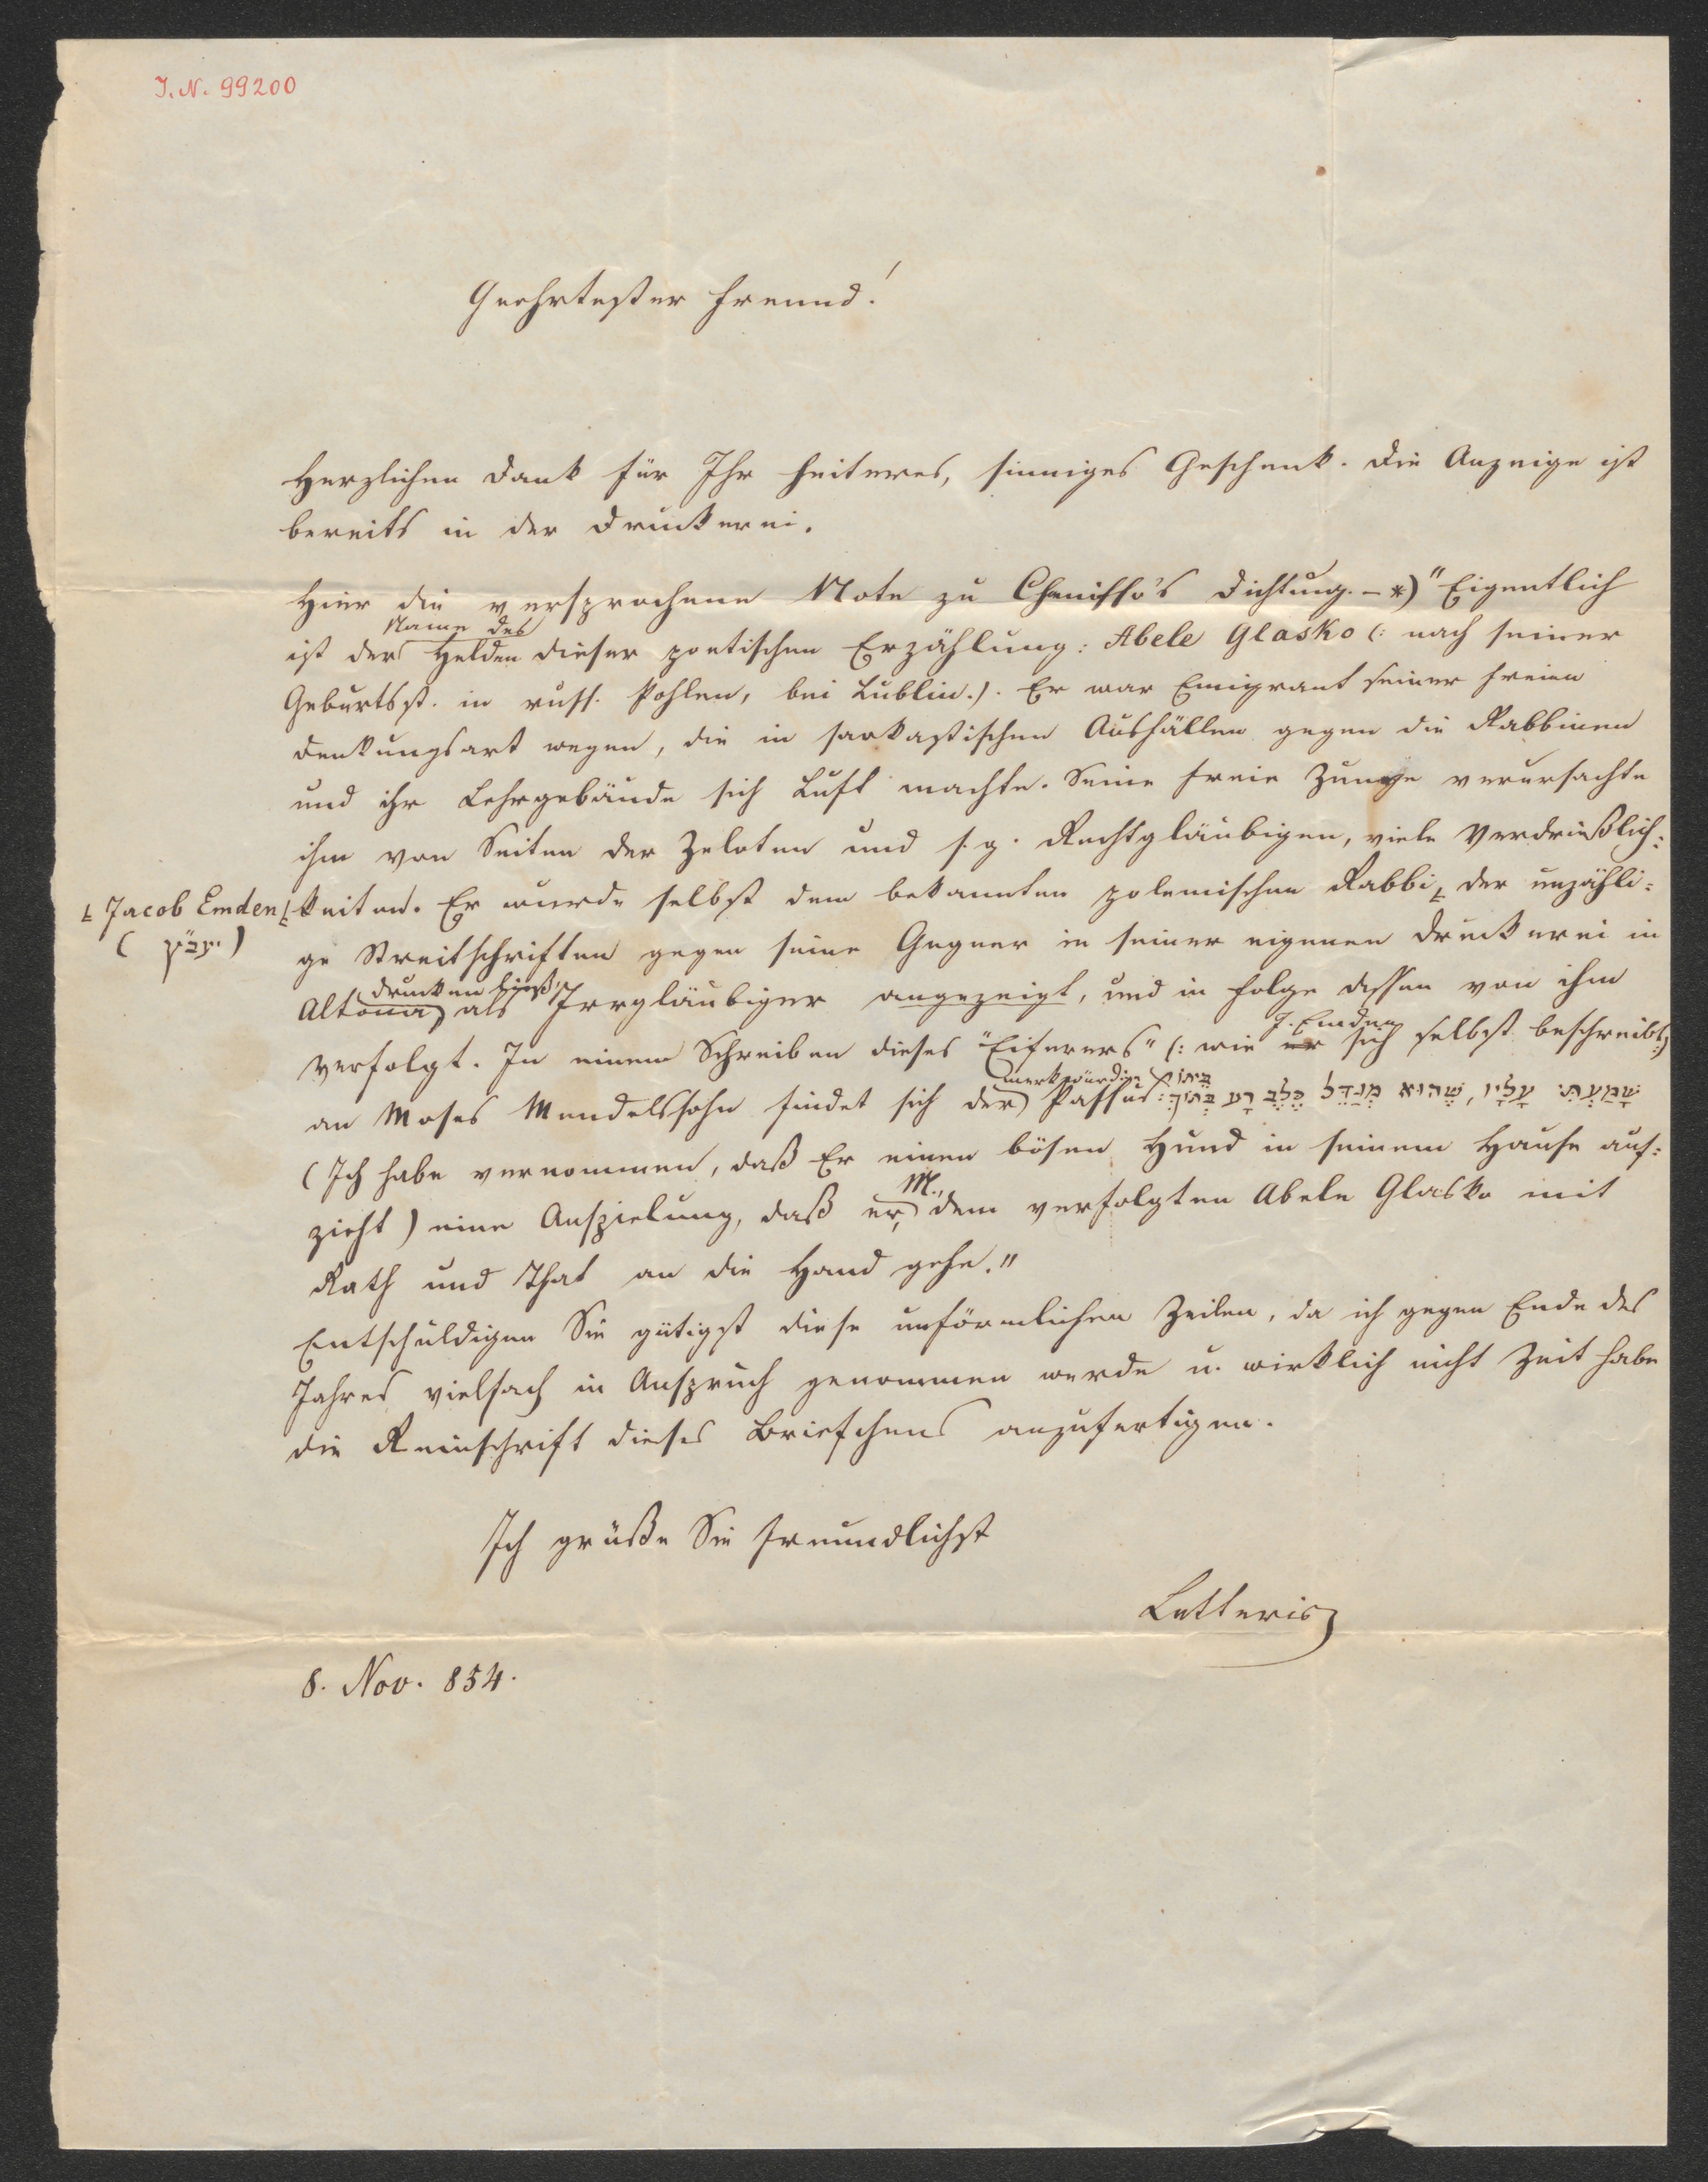 J. N. 99200
Geehrtester Freund!
Herzlichen Dank für Ihr heiteres, sinniges Geschenk. Die Anzeige ist
bereits in der Druckerei.
Hier die versprochene Note zu Chamisso's Dichtung. – *) "Eigentlich
Name des
ist der Helden dieser poetischen Erzählung: Abele Glasko (: nach seiner
Geburtsst. in russ. Pohlen, bei Lublin.). Er war Emigrant seiner freien
Denkungsart wegen, die in sarkastischen Ausfällen gegen die Rabbinen
und ihr Lehrgebäude sich Luft machte. Seine freie Zunge verursachte
ihm von Seiten der Zeloten und s. g. Rechtgläubigen, viele Verdrießlich:
keiten. Er wurde selbst dem bekannten polemischen Rabbi, der unzähli:
Jacob Emden
(יעב״ץ)
ge Streitschriften gegen seine Gegner in seiner eigenen Druckerei in
drucken ließ,
Altona als Irrgläubiger angezeigt, und in Folge dessen von ihm
J. Emden
verfolgt. In einem Schreiben dieses "Eiferers" (: wie er sich selbst beschreibt:)
merkwürdige
an Moses Mendelssohn findet sich der Passus: שָׁמַעְתִּי עָלָיו, שֶׁהוּא מְגַדֵּל כֶּלֶב רָע בְּתוֹךְ
בֵּיתוֹ
(Ich habe vernommen, daß Er einen bösen Hund in seinem Hause auf:
M.,
zieht) eine Anspielung, daß er, dem verfolgten Abele Glasko mit
Rath und That an die Hand gehe."
Entschuldigen Sie gütigst diese unförmlichen Zeilen, da ich gegen Ende des
Jahres vielfach in Anspruch genommen werde u. wirklich nicht Zeit habe
die Reinschrift dieses Briefchens anzufertigen.
Ich grüße Sie freundlichst
Letteris
8. Nov. 854.